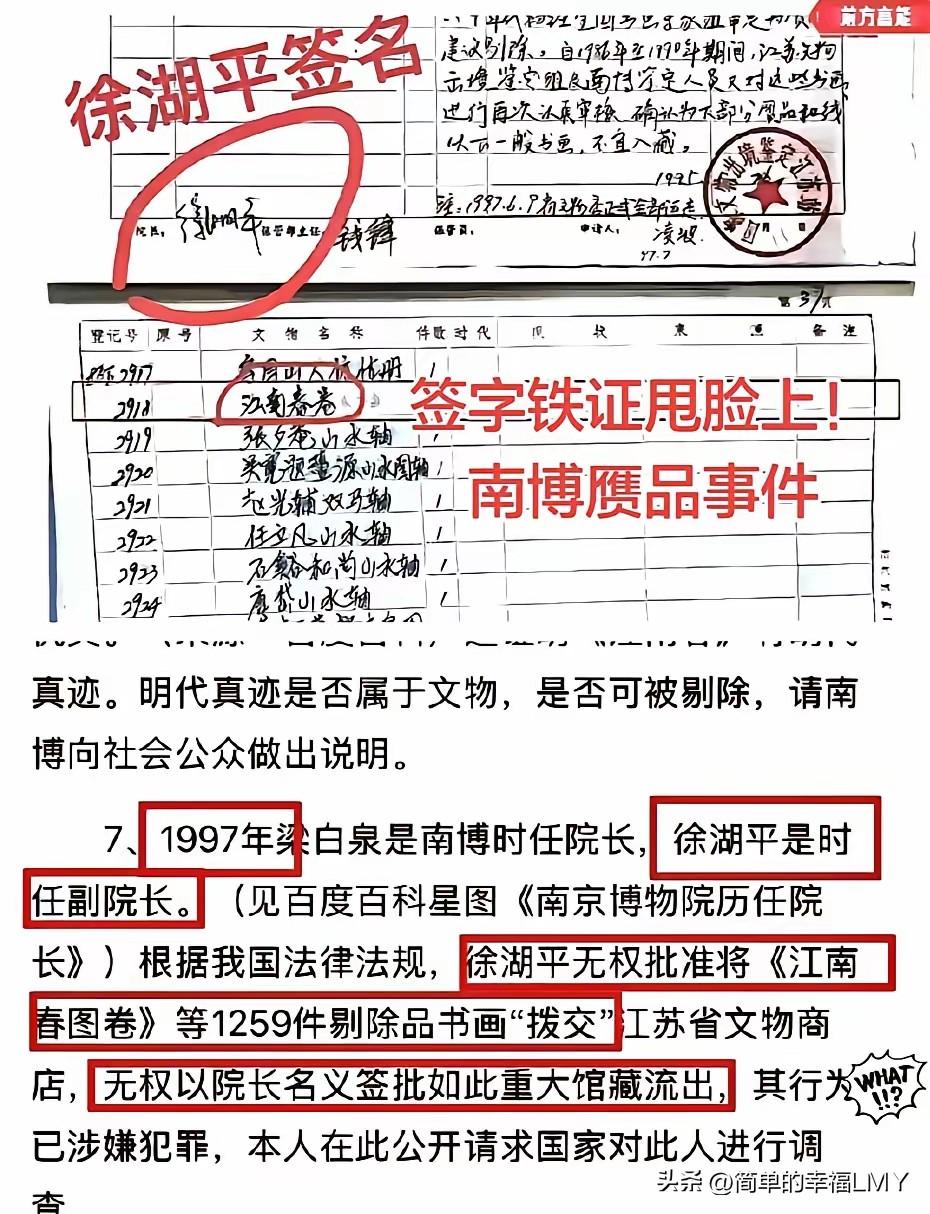 前方高能
徐湖平签名
建议剔除。自1986年至1990年期间,江苏文物
进行再次认真审核,确认为大部分赝品和残
次一般书画,不宜入藏。
1995
院长:
徐湖平
保管部主任:
钱锋
保管员:
申请人:
凌波
97.7
第37页
登记号 原号 文物名称 件数 时代 备注
2917
2918 江南春卷
2919 张夕庵山水轴 1
2920 1
2921 赵光辅双马轴 1
2922 任立凡山水轴 1
2923 石溪和尚山水轴 1
2924 山水轴 1
签字铁证甩脸上!
南博赝品事件
真迹。明代真迹是否属于文物,是否可被剔除,请南
博向社会公众做出说明。
7、1997年梁白泉是南博时任院长,徐湖平是时
任副院长。(见百度百科星图《南京博物院历任院
长》)根据我国法律法规,徐湖平无权批准将《江南
春图卷》等1259件剔除品书画“拨交”江苏省文物商
店,无权以院长名义签批如此重大馆藏流出,其行为
WHAT
!!?
已涉嫌犯罪,本人在此公开请求国家对此人进行调
查
头条 @简单的幸福LMY